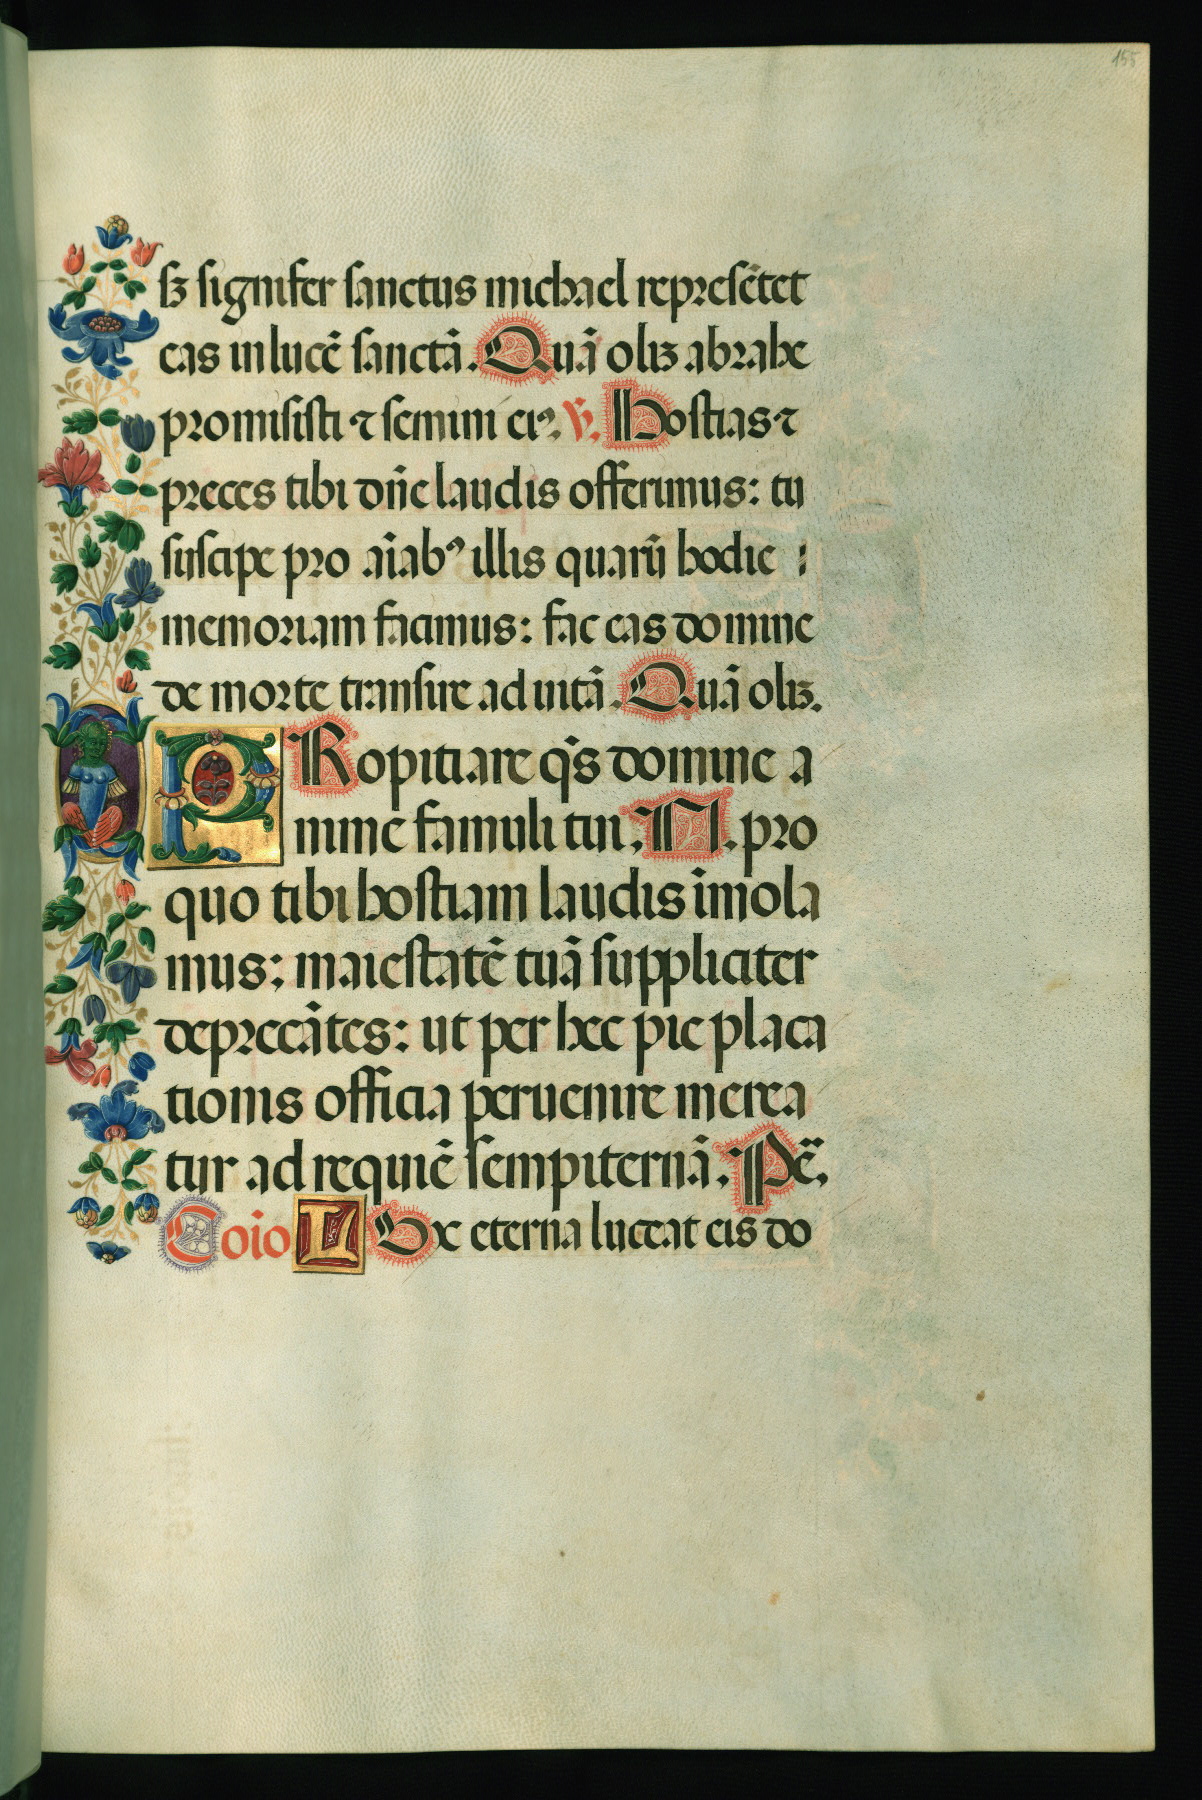 155
sꝫ signifer sanctus michael repꝛesẽtet
eas in lucẽ sanctã. Quã olĩꝫ abꝛahe
pꝛomisisti ⁊ semini eiꝰ. ℣. Hostias ⁊
pꝛeces tibi dñe laudis offerimus: tu
suscipe pꝛo aĩabꝰ illis quarũ hodie :
memoꝛiam facimus: fac eas domine
de moꝛte transire ad uitã. Quã oliꝫ.
PRopitiare qs̃ domine a
nime famuli tui. N. pꝛo
quo tibi hostiam laudis ĩmola
mus: maiestatẽ tuã suppliciter
depꝛecãtes: ut per hec pie placa
tionis officia peruenire merea
tur ad requiẽ sempiternã. Pẽ.
Coĩo LUx eterna luceat eis do